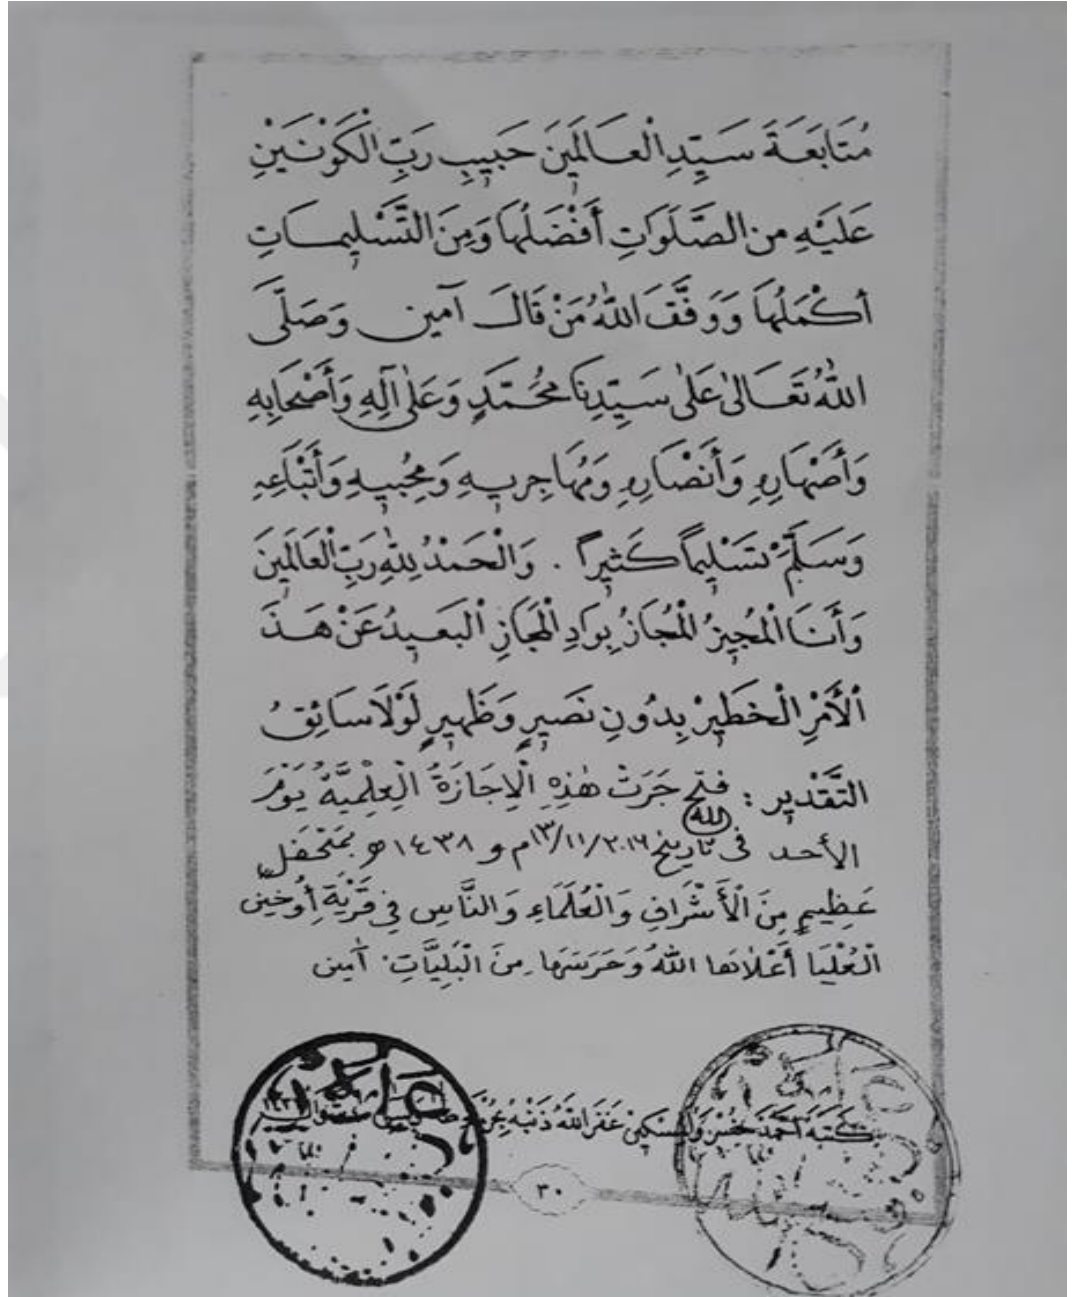 مُتَابَعَةَ سَيِّدِ الْعَالَمِينَ حَبِيبِ رَبِّ الْكَوْنَيْنِ
عَلَيْهِ مِنَ الصَّلَوَاتِ أَفْضَلُهَا وَمِنَ التَّسْلِيمَاتِ
أَكْمَلُهَا وَوَفَّقَ اللّٰهُ مَنْ قَالَ آمين وَصَلَّى
اللّٰهُ تَعَالىٰ عَلىٰ سَيِّدِنَا مُحَمَّدٍ وَعَلىٰ آلِهِ وَأَصْحَابِهِ
وَأَصْهَارِهِ وَأَنصَارِهِ وَمُهَاجِرِيهِ وَمُحِبِّيهِ وَأَتْبَاعِهِ
وَسَلَّمْ تَسْلِيماً كَثِيراً . وَالْحَمْدُ لِلّٰهِ رَبِّ الْعَالَمِينَ
وَأَنَا الْمُجِيزُ الْمُجَازُ بِوَادِ الْمَجَازِ الْبَعِيدُ عَنْ هَذَ
الْأَمْرِ الْخَطِيرْ بِدُونِ نَصِيرٍ وَظَهِيرٍ لَوْلَا سَائِقُ
التَّقْدِير : فتح الله جَرَتْ هٰذِهِ الْاِجَازَةُ الْعِلْمِيَّةُ يَوْمَ
الأحد فى تاريخ ١٣/١١/٢٠١٦م و ١٤٣٨ھ بمَحْفَل
عَظِيمٍ مِنَ الْأَشْرَافِ وَالْعُلَمَاءِ وَالنَّاسِ فِي قَرْيَةِ أُوخِين
الْعُلْيَا أَعْلَاهَا اللّٰهُ وَحَرَسَهَا مِنَ الْبَلِيَّاتِ. آمين
كَتَبَهُ أَحْمَدُ غَفَرَ اللّٰهُ ذَنْبَهُ
٣٠